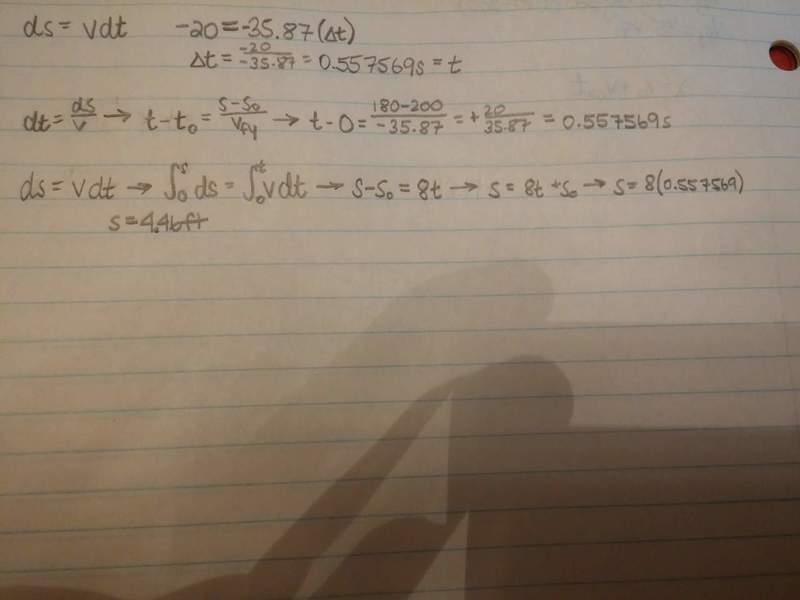 ds = vdt -20 = -35.87(Δt)
Δt = -20/-35.87 = 0.557569s = t
dt = ds/v → t-t₀ = s-s₀/Vfy → t-0 = 180-200/-35.87 = +20/35.87 = 0.557569s
ds = vdt → ∫₀ˢ ds = ∫₀ᵗ vdt → s-s₀ = 8t → s = 8t + s₀ → s = 8(0.557569)
s = 4.46ft